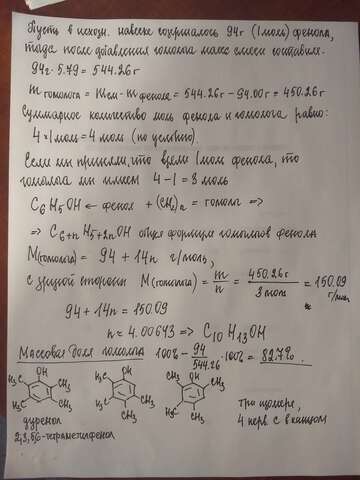 Пусть в исходн. навеске содержалось 94г (1 моль) фенола,
тогда после добавления гомолога масса смеси составила:
94г · 5.79 = 544.26г
m гомолога = m см - m фенола = 544.26г - 94.00г = 450.26г
Суммарное количество моль фенола и гомолога равно:
4 * 1 моль = 4 моль (по условию).
Если мы приняли, что взяли 1 моль фенола, то
гомолога мы имеем 4 - 1 = 3 моль
C6H5OH ← фенол + (CH2)n = гомолог ⇒
⇒ C6+nH5+2nOH общая формула гомологов фенола
M(гомолога) = 94 + 14n г/моль,
с другой стороны M(гомолога) = m/n = 450.26г/3моль = 150.09 г/моль
94 + 14n = 150.09
n = 4.00643 ⇒ C10H13OH
Массовая доля гомолога 100% - 94/544.26 · 100% = 82.7%.
OH OH OH
H3C CH3 H3C CH3 H3C CH3
H3C CH3 H3C CH3 H3C CH3
три изомера,
4 перв. с в кажд
дуренол
2,3,5,6-тетраметилфенол